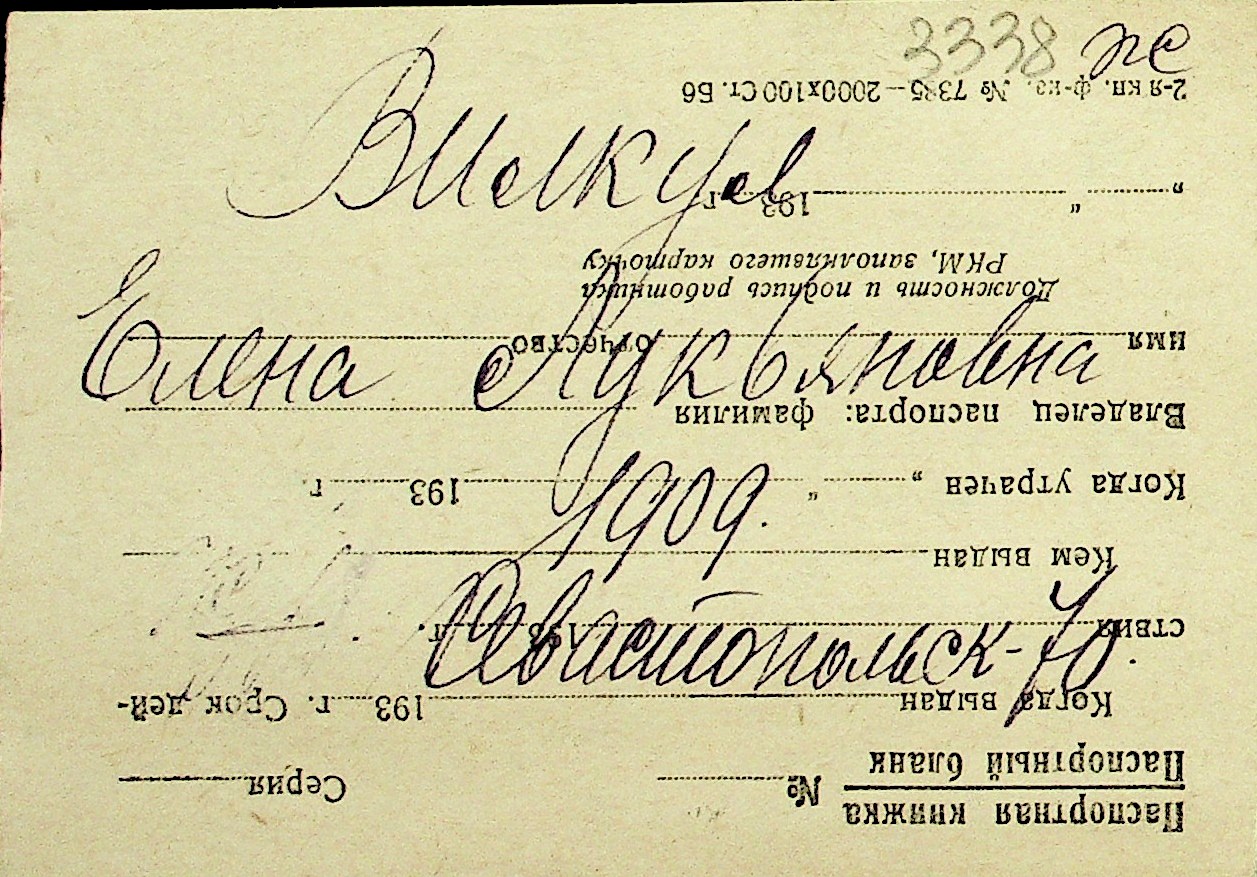 3338 пс
Вилкул
Елена Лукьяновна
1909.
Севастопольск-70.
Паспортная книжка
Паспортный бланк
№ Серия
Когда выдан 193 г. Срок дей-
ствия 193 г.
Кем выдан
Когда утрачен „ “ 193 г
Владелец паспорта: фамилия
имя отчество
Должность и подпись работника
РКМ, заполнявшего карточку
„ “ 193 г.
2-я кн. ф-ка. № 7385—2000х100 Ст. Б6